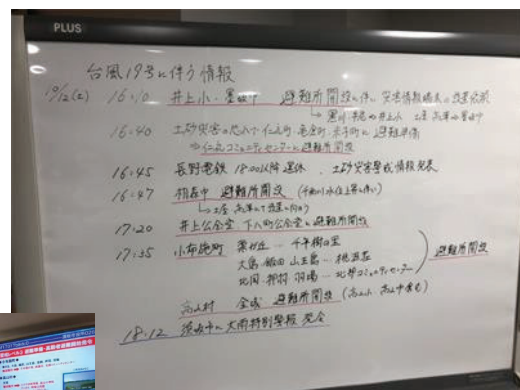 PLUS
台風19号に伴う情報
10/12(土) 16:10 井上小・墨坂中 避難所開設に伴い 災害情報端末の設置依頼
16:40 土砂災害の恐れで 仁礼町 亀倉町 米子町に避難準備
⇒仁礼コミュニティセンターに避難所開設
16:45 長野電鉄 18:00以降運休、土砂災害警戒情報発表
16:47 相森中 避難所開設 (千曲川水位上昇に伴い)
17:20 井上公会堂、下八町公会堂に避難所開設
17:35 小布施町 千年樹の里
大島 飯田 山王島…
北岡 押羽 羽場… 北部コミュニティセンター
避難所開設
高山村 全域 避難所開設 (高山小、高山中含む)
18:12 須坂市に大雨特別警報 発令